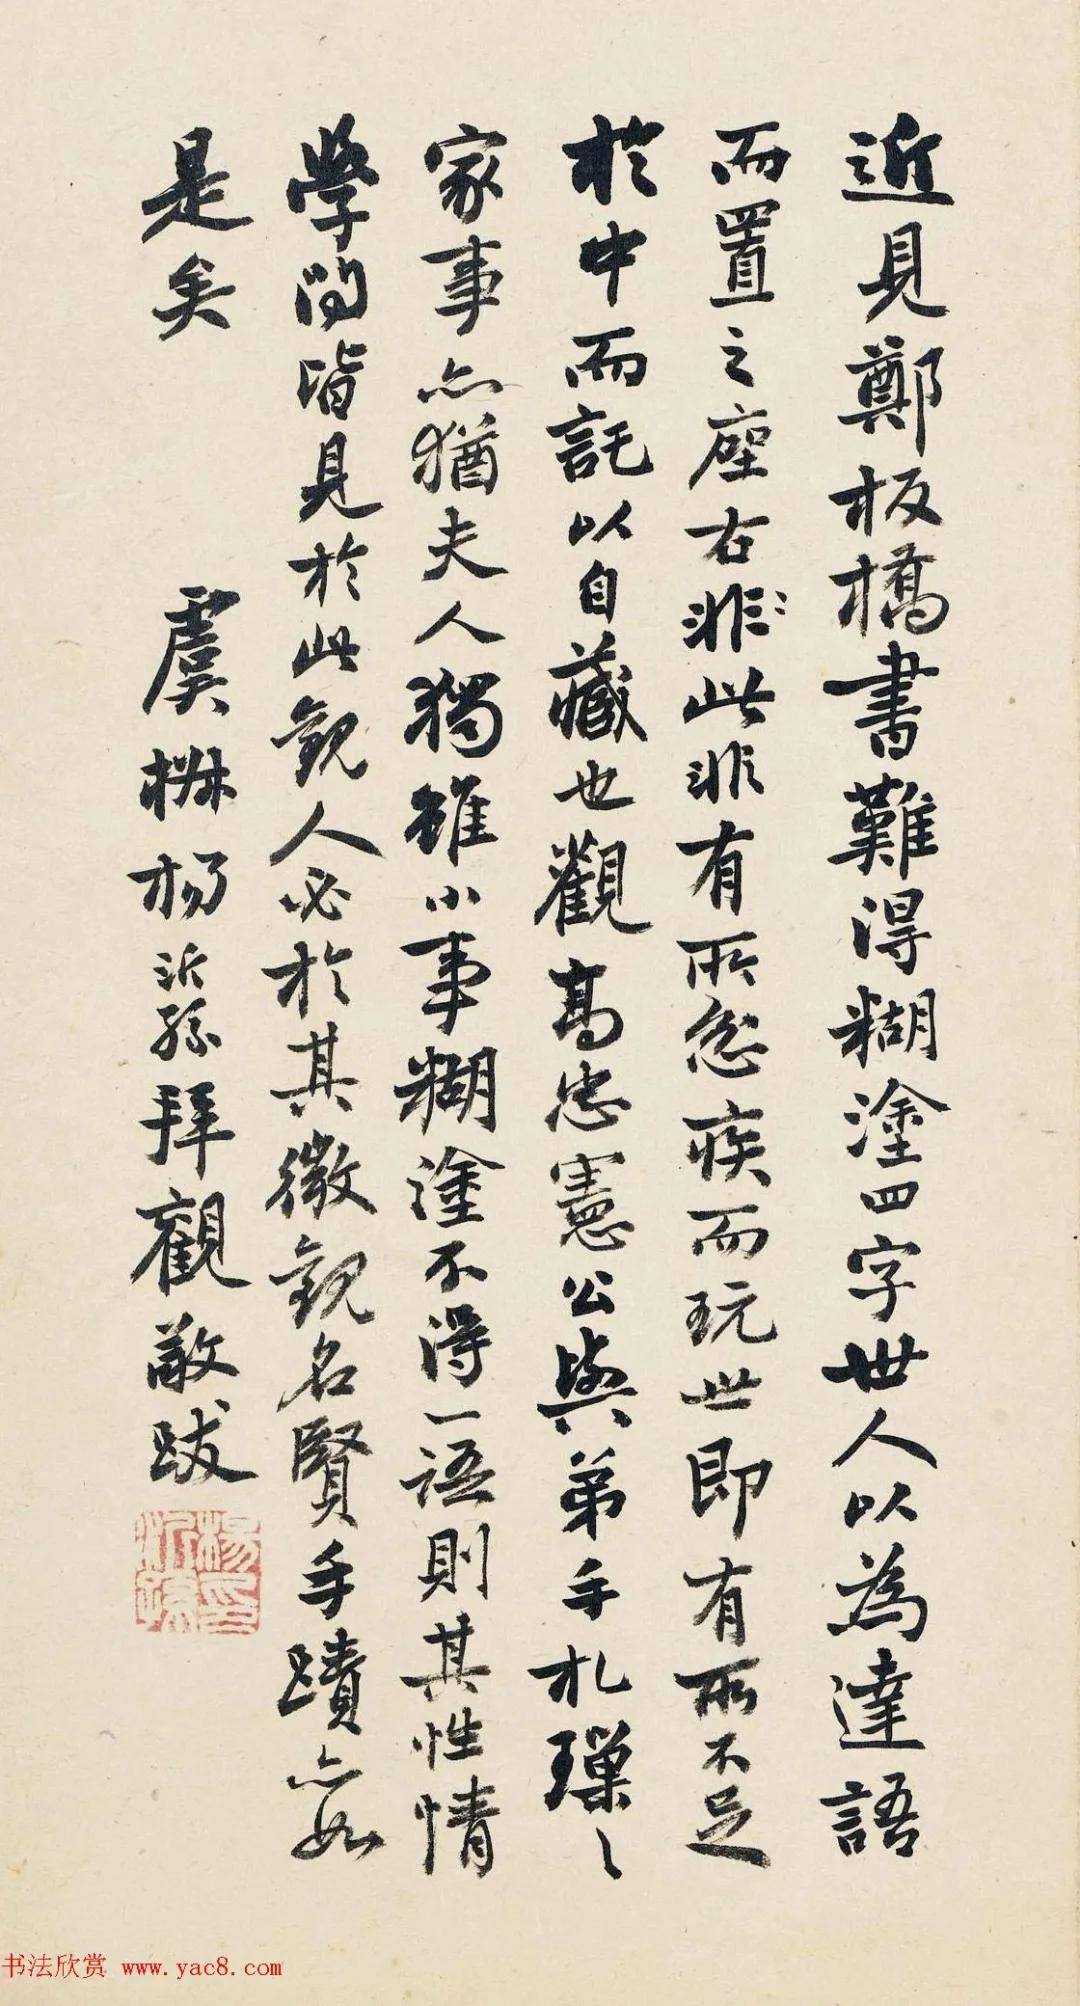 近見鄭板橋書難得糊塗四字世人以為達語
而置之座右非此非有所忿疾而玩世即有所不足
於中而託以自藏也觀高忠憲公與弟手札瑣〻
家事亦猶夫人獨雖小事糊塗不得一語則其性情
學問皆見於此觀人必於其微觀名賢手蹟亦如
是矣
虞 楊沂孫拜觀敬跋
楊沂孫印
书法欣赏 www.yac8.com